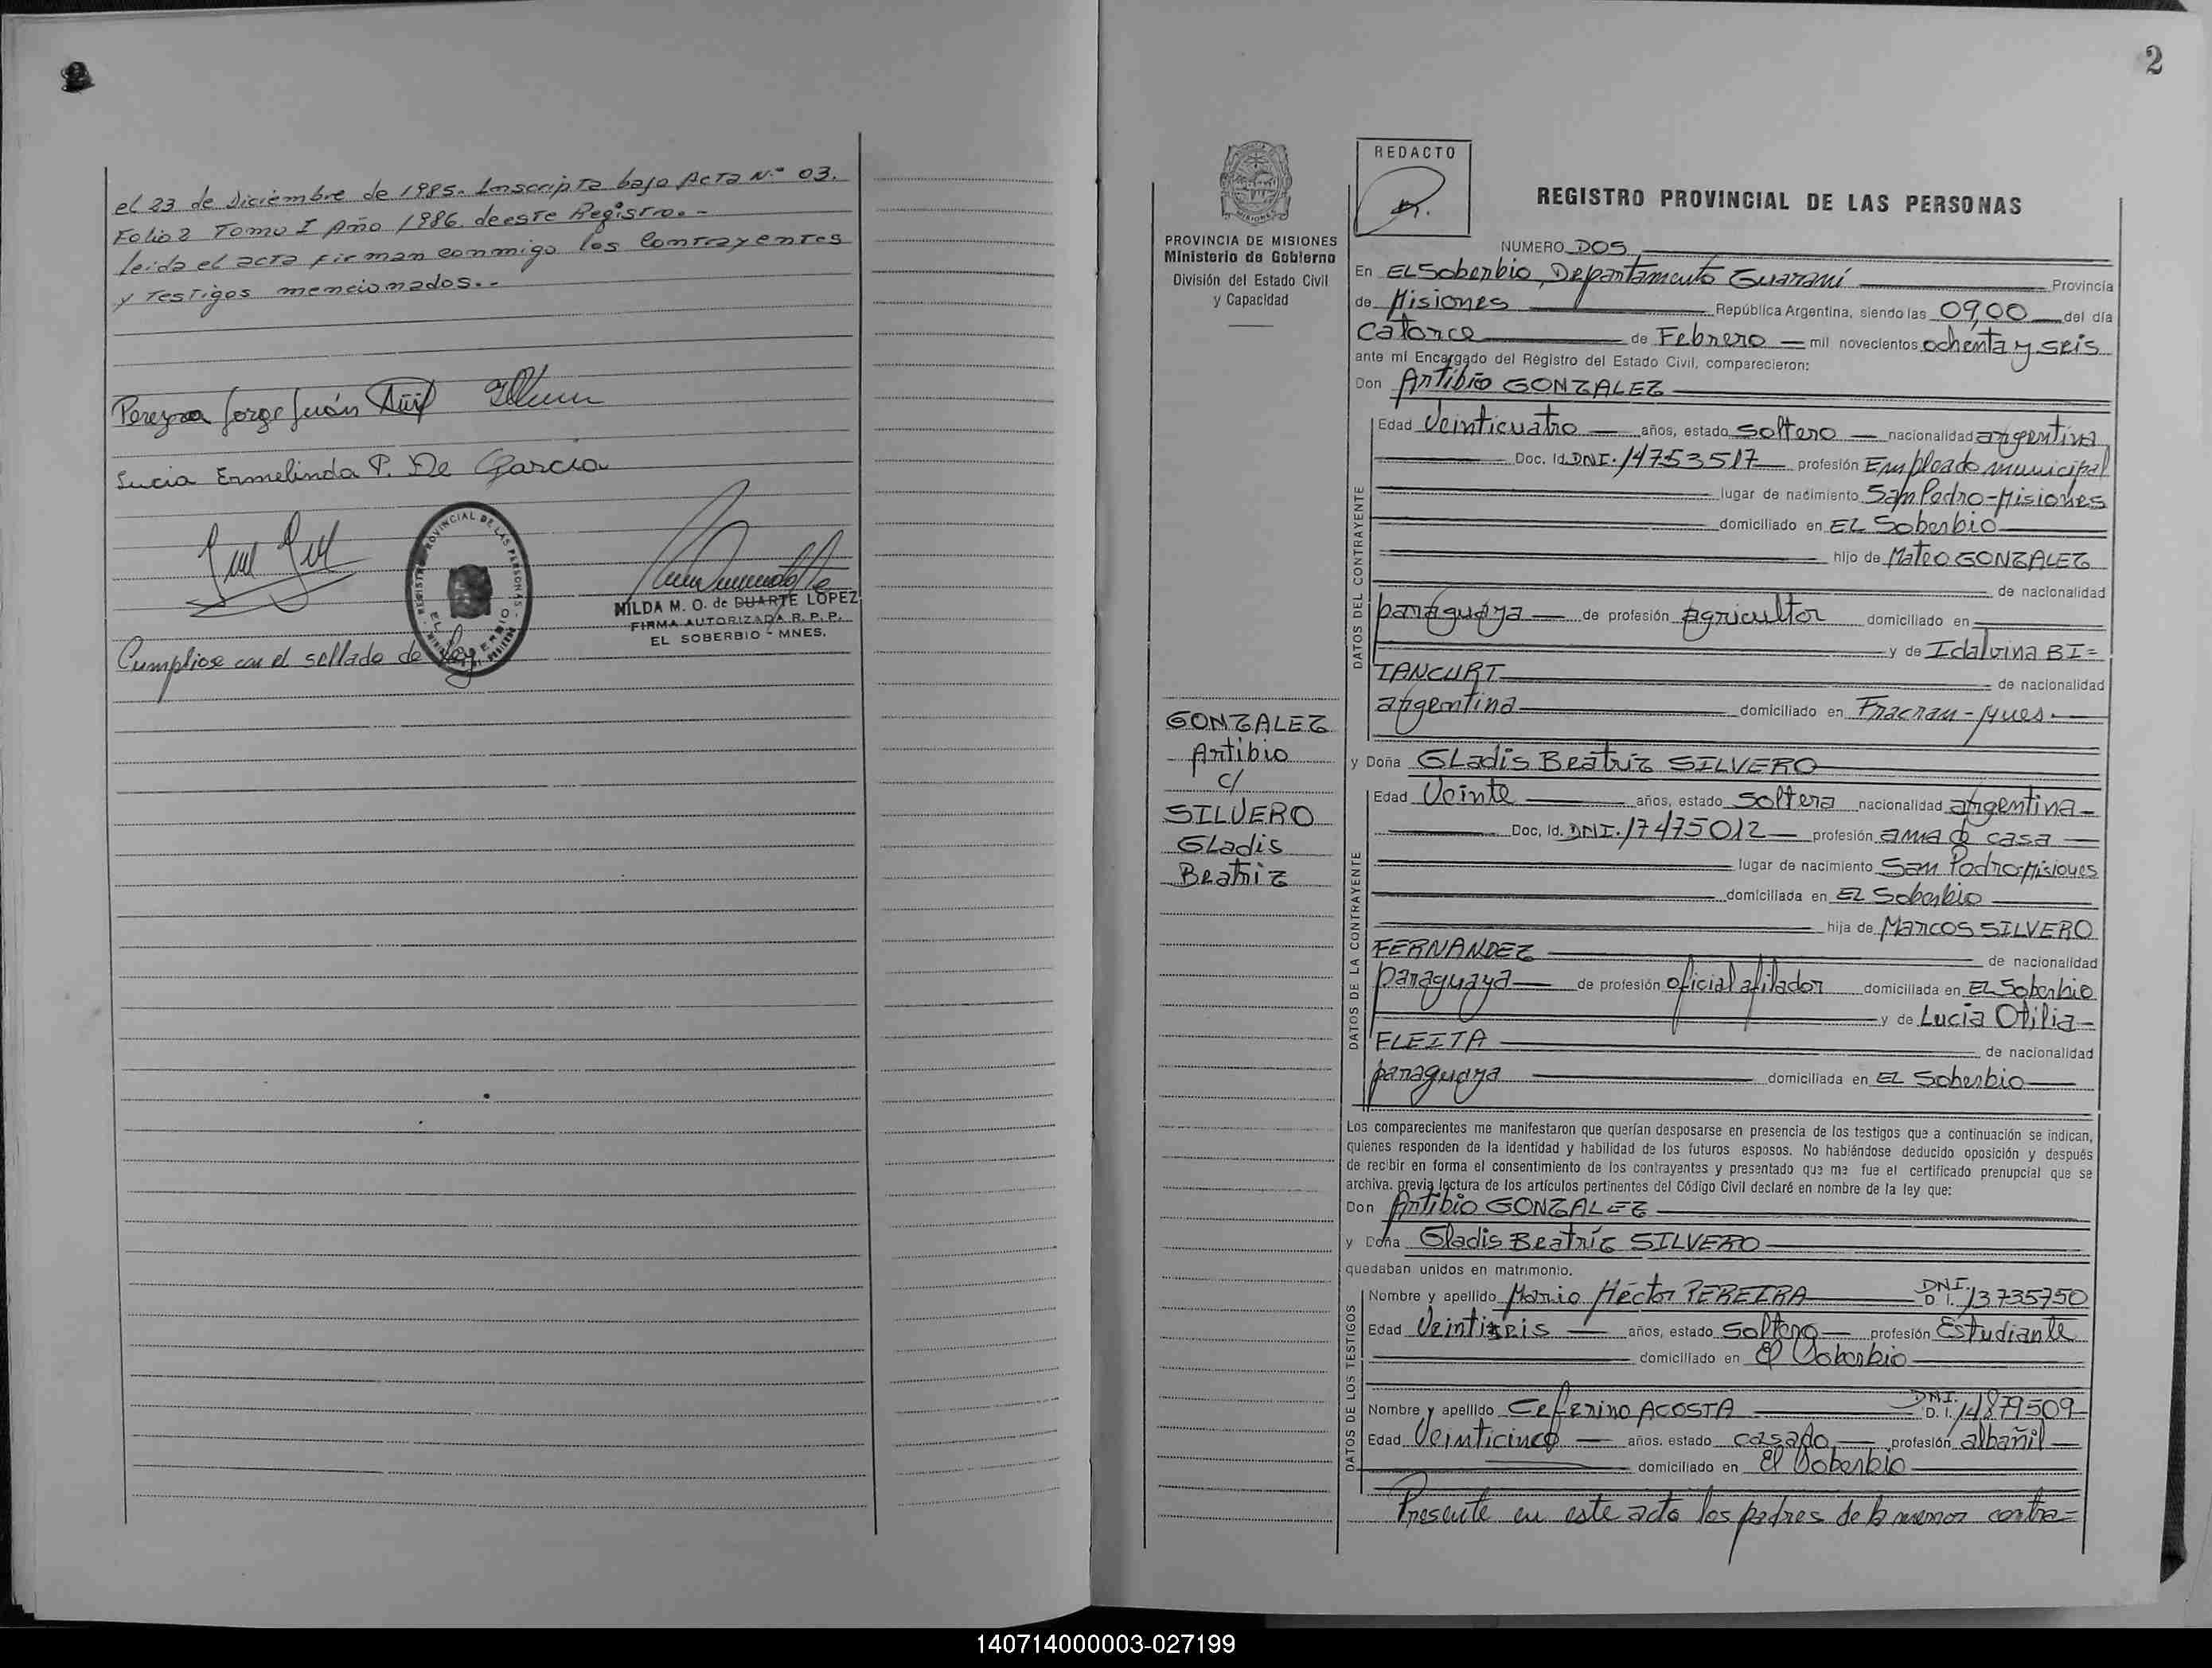 el 23 de Diciembre de 1985. Inscripta bajo Acta N.º 03.
Folio 2 Tomo I Año 1986. de este Registro.-
leida el acta firman conmigo los Contrayentes
y Testigos mencionados.-
Pereyra Jorge Juán
Lucia Ermelinda P. De Garcia
REGISTRO PROVINCIAL DE LAS PERSONAS
EL SOBERBIO
NILDA M. O. de DUARTE LOPEZ
FIRMA AUTORIZADA R. P. P.
EL SOBERBIO - MNES.
Cumpliose con el sellado de Ley
2
PROVINCIA DE MISIONES
Ministerio de Gobierno
División del Estado Civil
y Capacidad
GONZALEZ
Artibio
c/
SILVERO
Gladis
Beatriz
REDACTO
REGISTRO PROVINCIAL DE LAS PERSONAS
NUMERO DOS
En EL Soberbio, Departamento Guaraní Provincia
de Misiones República Argentina, siendo las 09,00 del día
catorce de Febrero mil novecientos ochenta y seis
ante mí Encargado del Registro del Estado Civil, comparecieron:
Don Artibio GONZALEZ
DATOS DEL CONTRAYENTE
Edad Veinticuatro años, estado soltero nacionalidad argentina
Doc. Id. DNI. 14753517 profesión Empleado municipal
lugar de nacimiento San Pedro-Misiones
domiciliado en EL Soberbio
hijo de Mateo GONZALEZ
de nacionalidad
paraguaya de profesión agricultor domiciliado en
y de Idalvina BI=
TANCURT de nacionalidad
argentina domiciliado en Fracran-Mnes.
y Doña GLadis Beatriz SILVERO
DATOS DE LA CONTRAYENTE
Edad Veinte años, estado soltera nacionalidad argentina
Doc. Id. DNI. 17475012 profesión ama de casa
lugar de nacimiento San Pedro-Misiones
domiciliada en EL Soberbio
hija de Marcos SILVERO
FERNANDEZ de nacionalidad
paraguaya de profesión oficial afilador domiciliada en EL Soberbio
y de Lucia Otilia
FLEITA de nacionalidad
paraguaya domiciliada en EL Soberbio
Los comparecientes me manifestaron que querían desposarse en presencia de los testigos que a continuación se indican,
quienes responden de la identidad y habilidad de los futuros esposos. No habiéndose deducido oposición y después
de recibir en forma el consentimiento de los contrayentes y presentado que me fue el certificado prenupcial que se
archiva, previa lectura de los artículos pertinentes del Código Civil declaré en nombre de la ley que:
Don Artibio GONZALEZ
y Doña Gladis Beatríz SILVERO
quedaban unidos en matrimonio.
DATOS DE LOS TESTIGOS
Nombre y apellido Mario Héctor PEREIRA DNI D. I. 13735750
Edad Veintiseis años, estado soltero profesión Estudiante
domiciliado en El Soberbio
Nombre y apellido Ceferino ACOSTA DNI. D. I. 14879509
Edad Veinticinco años, estado casado profesión albañil
domiciliado en El Soberbio
Presente en este acto los padres de la menor contra=
140714000003-027199